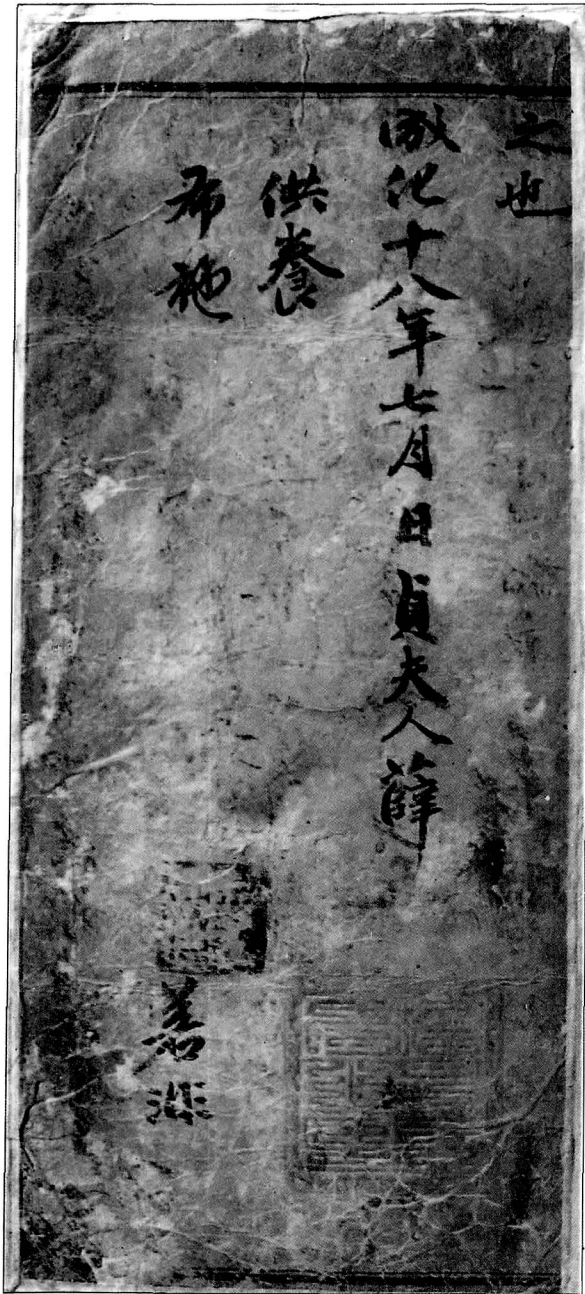 之也
成化十八年七月 日貞夫人薛
供養
布施
若非